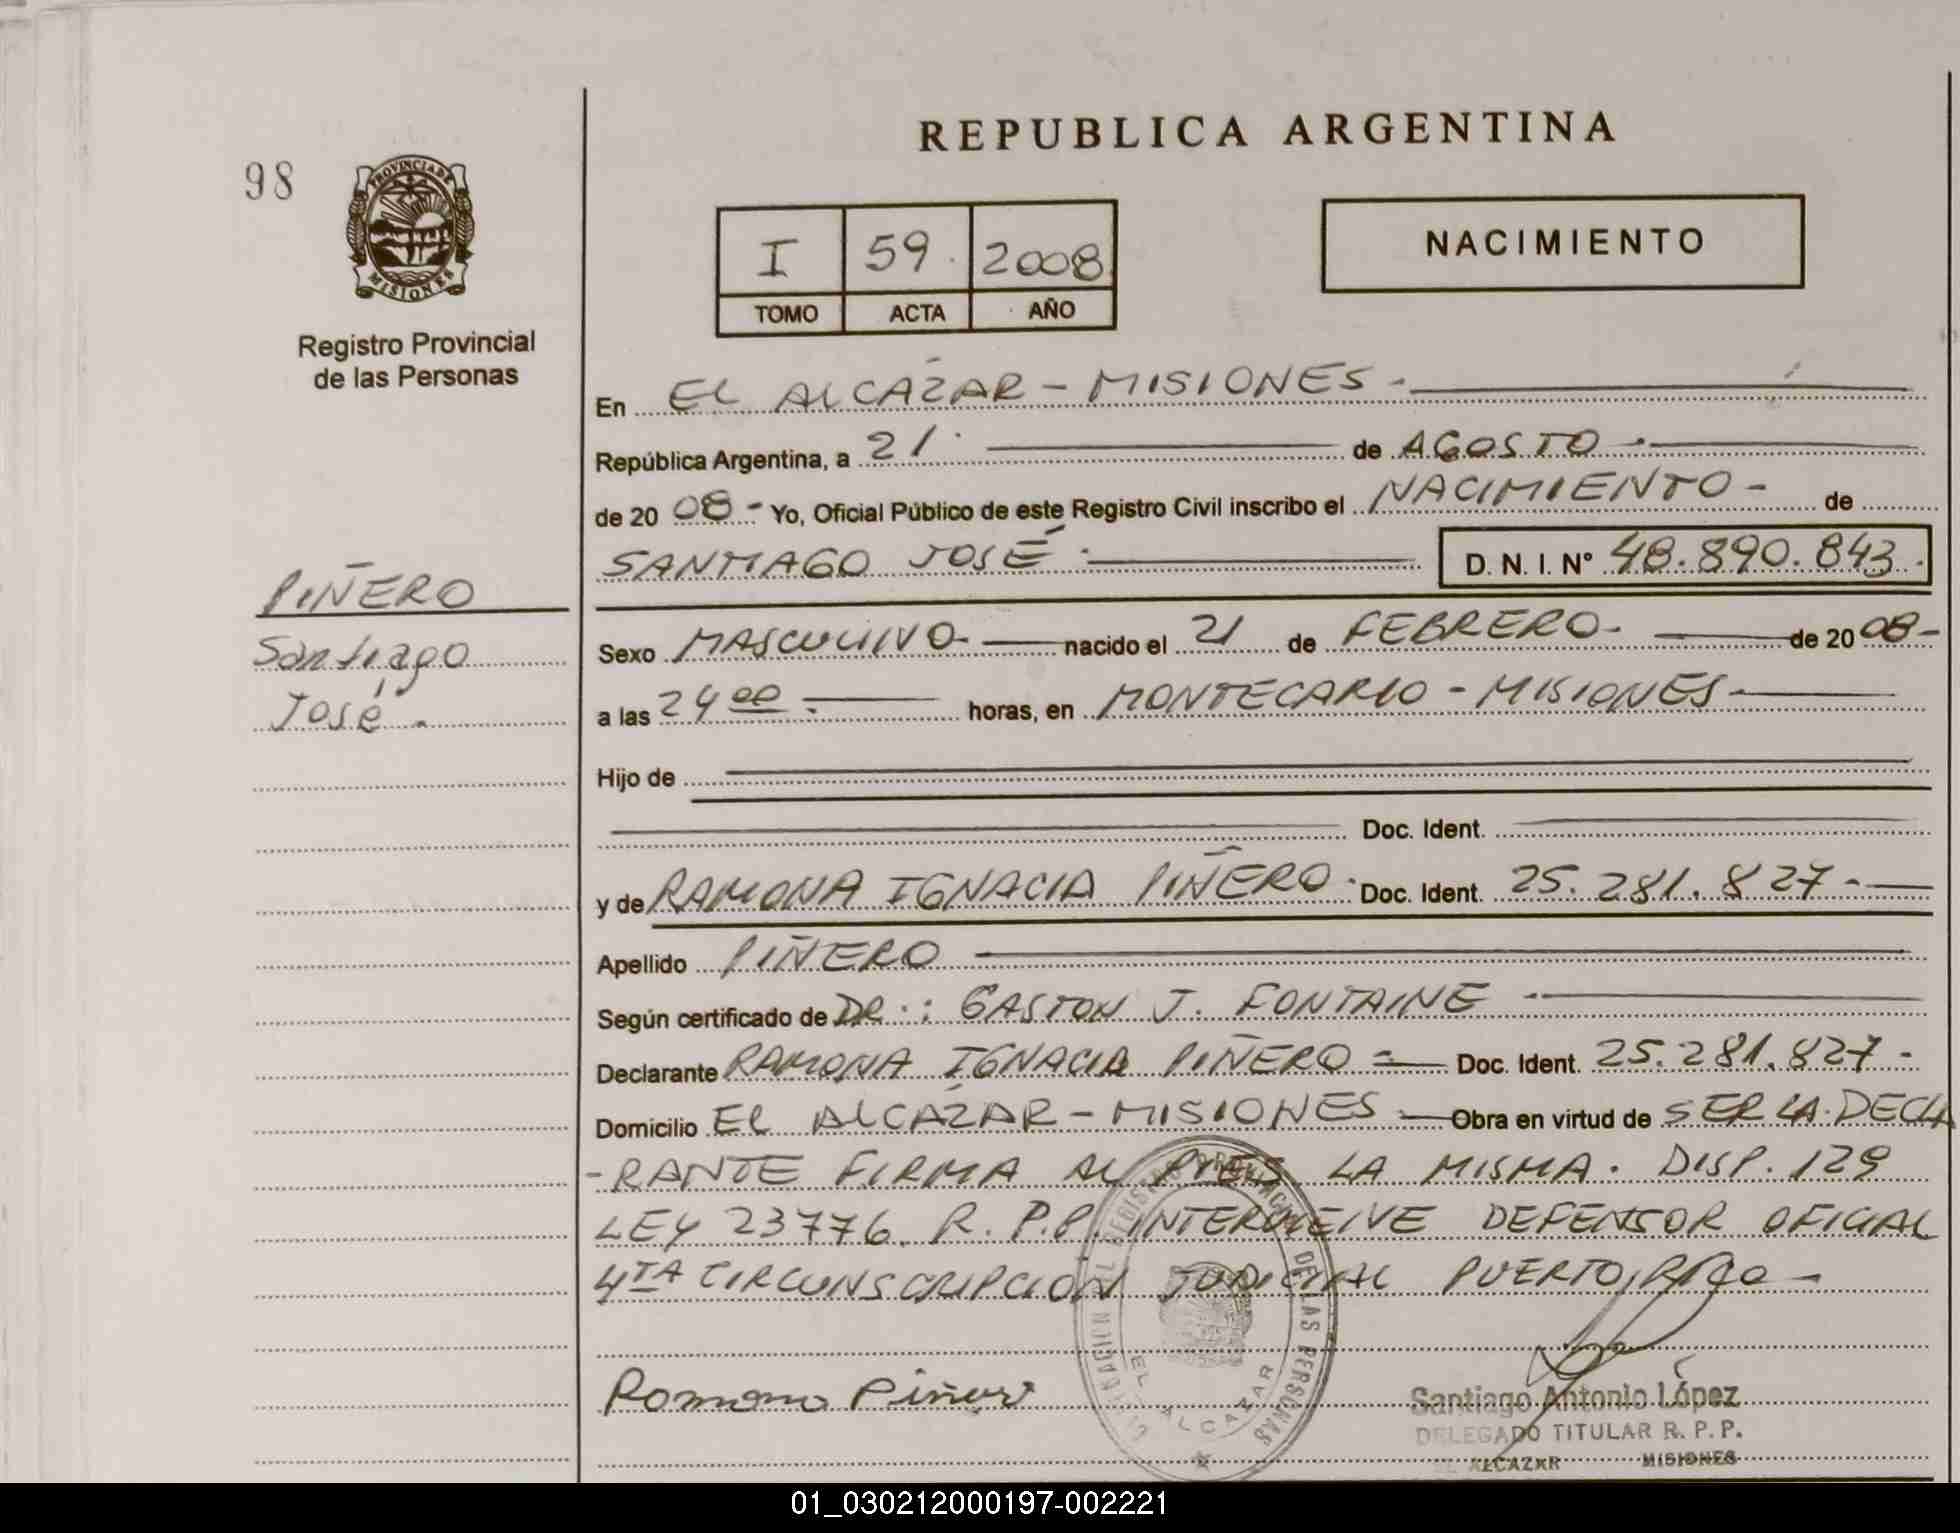 REPUBLICA ARGENTINA
98
PROVINCIA DE
MISIONES
I 59. 2008
TOMO ACTA AÑO
NACIMIENTO
Registro Provincial
de las Personas
En EL ALCÁZAR - MISIONES -
República Argentina, a 21. de AGOSTO
de 20 08 - Yo, Oficial Público de este Registro Civil inscribo el NACIMIENTO - de
SANTIAGO JOSÉ. D. N. I. Nº 48.890.843.
PIÑERO
Santiago
José.
Sexo MASCULINO - nacido el 21 de FEBRERO - de 20 08 -
a las 24 00 horas, en MONTECARLO - MISIONES -
Hijo de
Doc. Ident.
y de RAMONA IGNACIA PIÑERO. Doc. Ident. 25.281.827 -
Apellido PIÑERO
Según certificado de DR.: GASTON J. FONTAINE
Declarante RAMONA IGNACIA PIÑERO = Doc. Ident. 25.281.827 -
Domicilio EL ALCÁZAR - MISIONES - Obra en virtud de SER LA DECLA
-RANTE FIRMA AL PIES LA MISMA. DISP. 129
LEY 23776. R. P.P. INTERVIEIVE DEFENSOR OFICIAL
4TA CIRCUNSCRIPCIÓN JUDICIAL PUERTO RICO -
Romona Piñero
REGISTRO PROVINCIAL DE LAS PERSONAS
EL ALCAZAR
Santiago Antonio López
DELEGADO TITULAR R. P. P.
EL ALCAZAR MISIONES
01_030212000197-002221